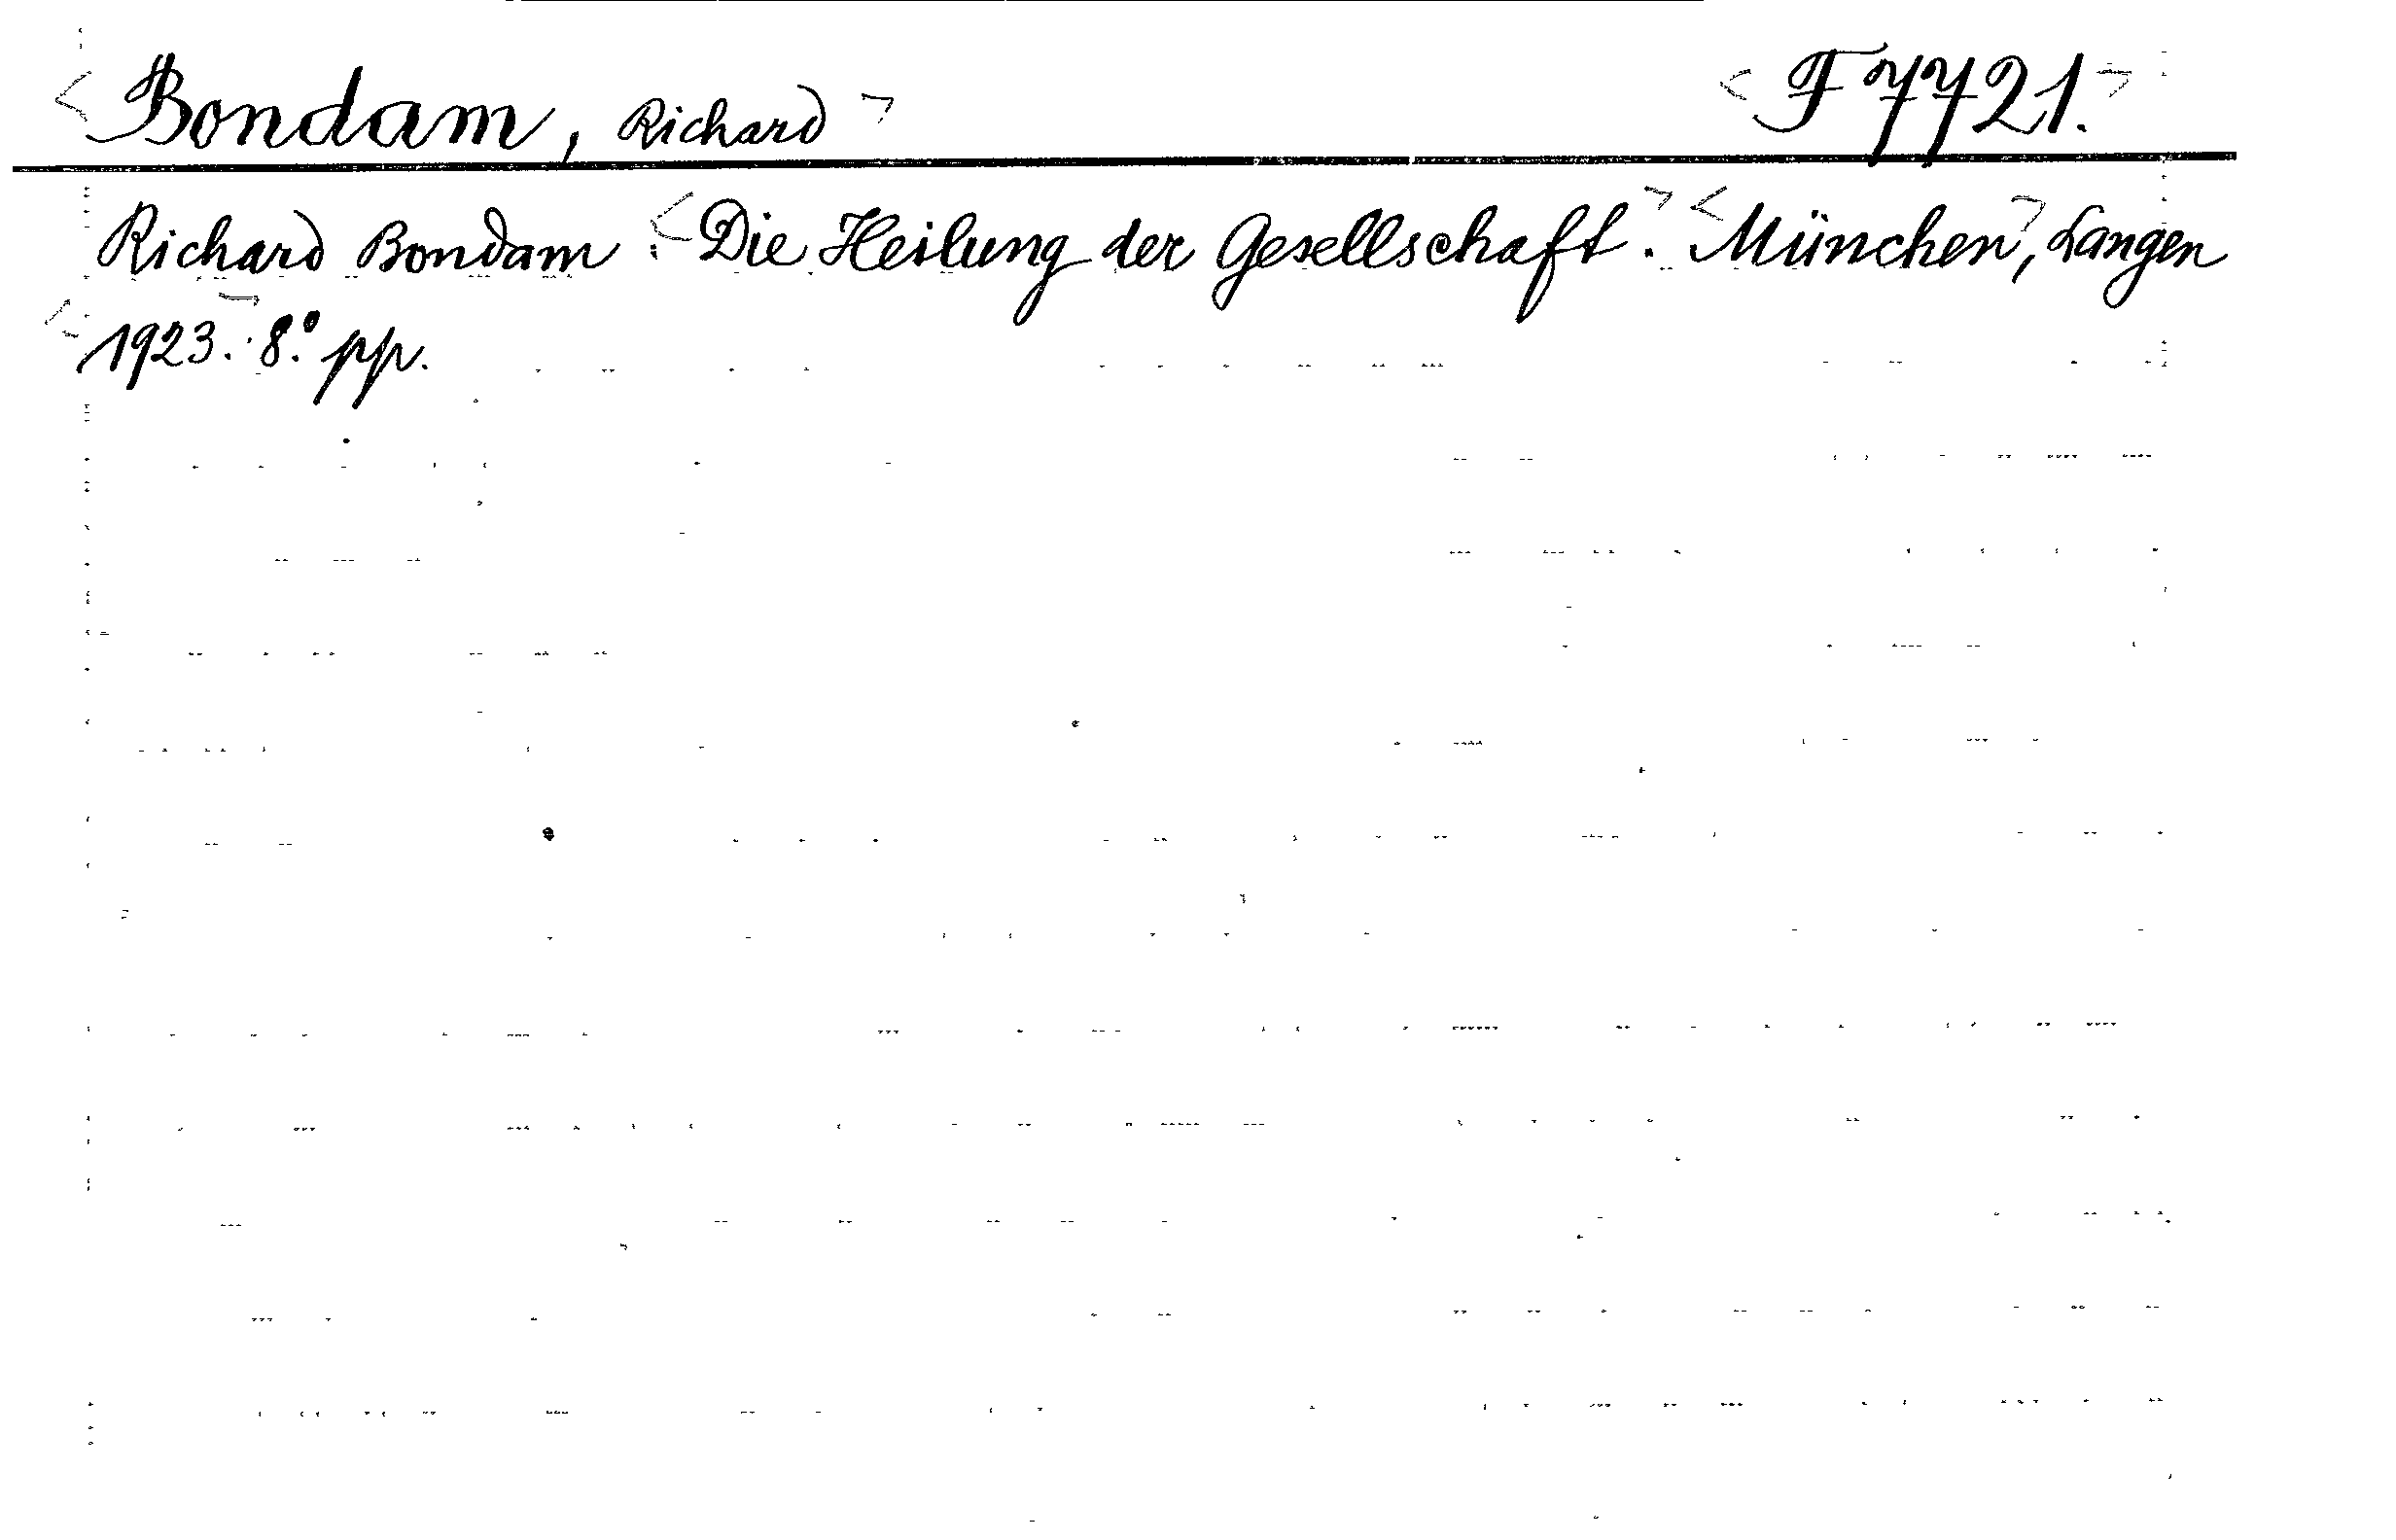 <Bondam, Richard> <F 7721.>
Richard Bondam: <Die Heilung der Gesellschaft.> <München>, Langen
<1923.> 8.° pp.